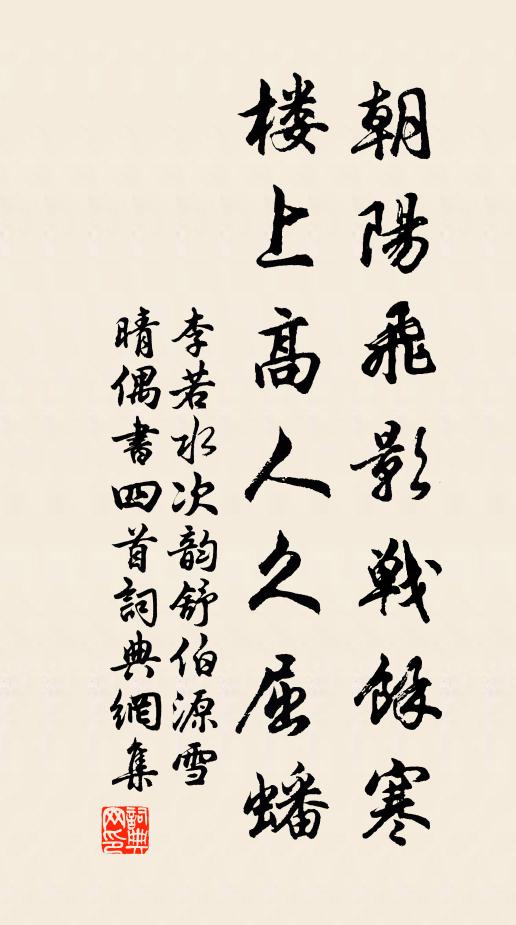 朝陽飛影戰餘寒
楼上高人久屈蟠
李若水次韵舒伯源雪
晴偶書四首詞典網集